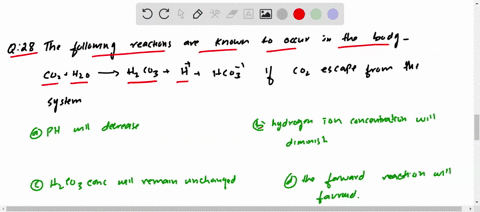 Q:28 The following reactions are known to occur in the body-
CO2 + H2O ⟶ H2CO3 + H⁺ + HCO3⁻¹ If CO2 escape from the
system
(a) PH will decrease
(b) hydrogen ion concentration will
diminish
(c) H2CO3 conc will remain unchanged
(d) the forward reaction will
favoured.